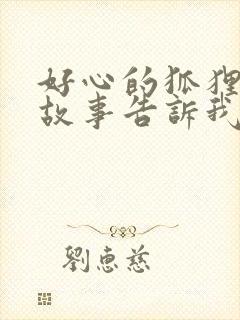 好心的狐狸
故事告訴我
劉惠慈